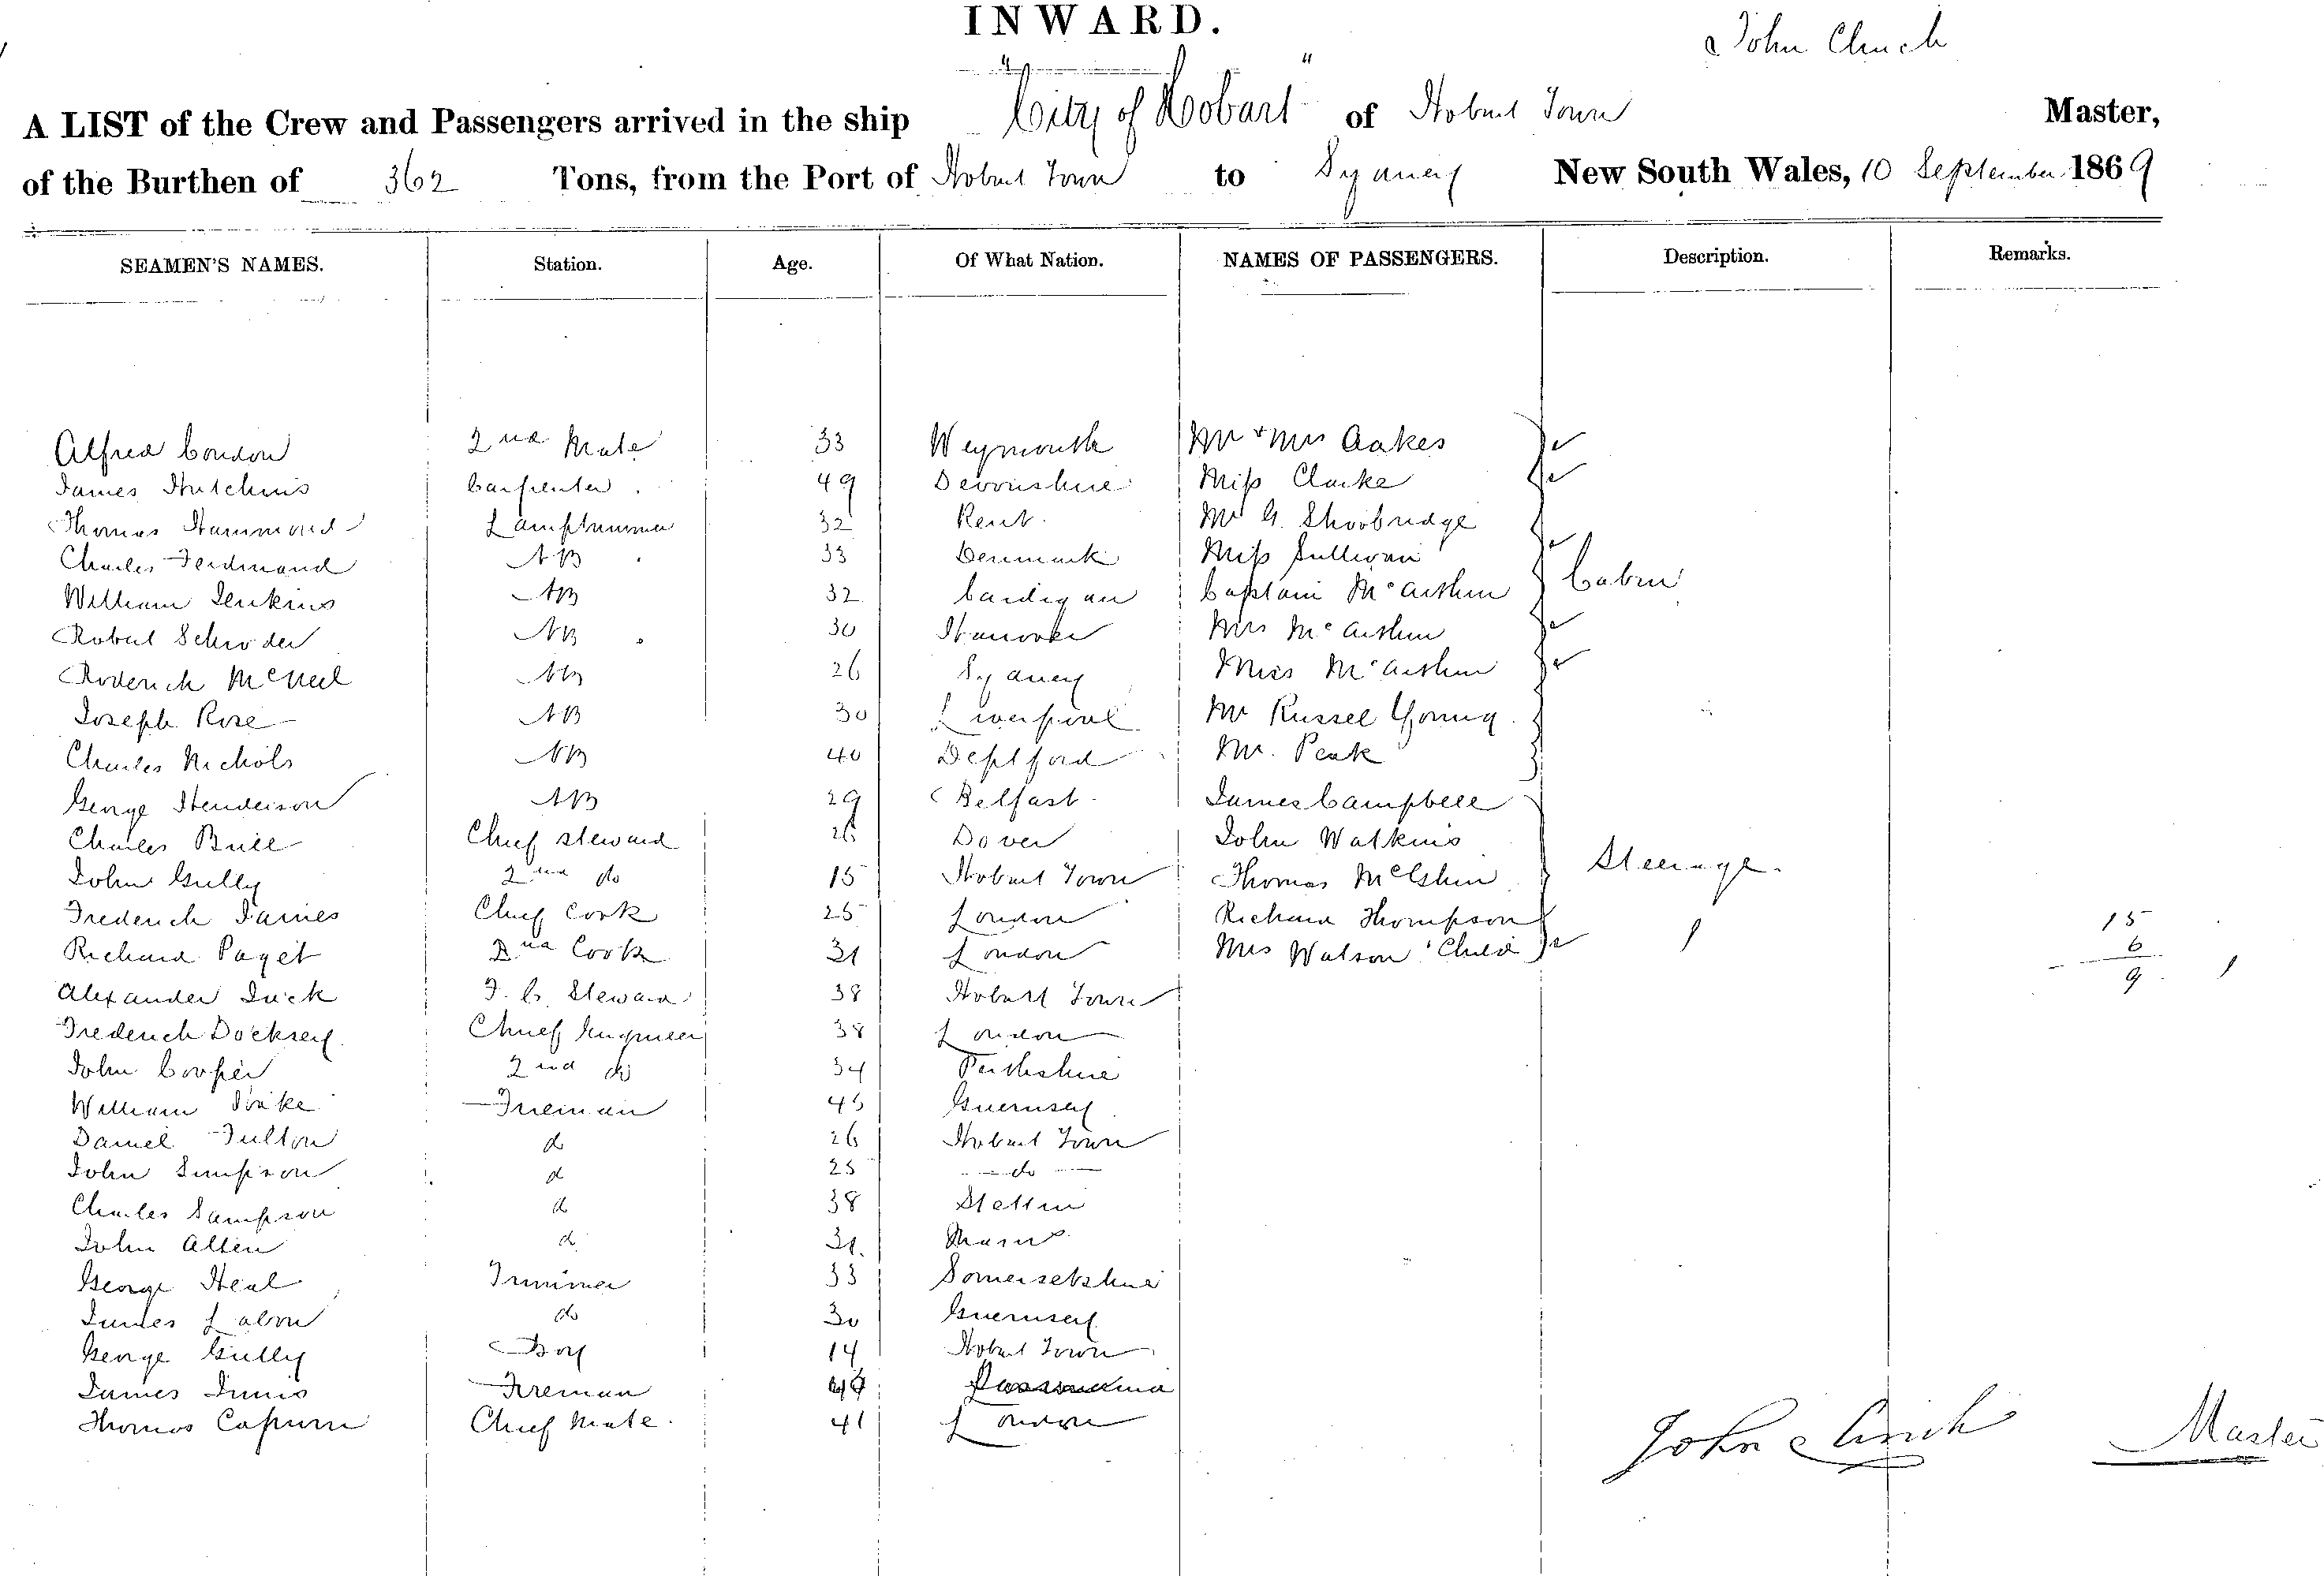 INWARD.
John Clinch
A LIST of the Crew and Passengers arrived in the ship "City of Hobart" of Hobart Town Master,
of the Burthen of 362 Tons, from the Port of Hobart Town to Sydney New South Wales, 10 September 1869
SEAMEN'S NAMES. Station. Age. Of What Nation. NAMES OF PASSENGERS. Description. Remarks.
Alfred Condon 2nd Mate 33 Weymouth Mr & Mrs Oakes
James Hutchins Carpenter 49 Devonshire Miss Clarke
Thomas Hammond Lamptrimmer 32 Kent Mr G. Shoobridge
Charles Ferdinand AB 33 Denmark Miss Sullivan
William Jenkins AB 32 Cardigan Captain McArthur Cabin
Robert Schroder AB 30 Hanover Mrs McArthur
Roderick McNeil AB 26 Sydney Miss McArthur
Joseph Rose AB 30 Liverpool Mr Russel Young
Charles Nichols AB 40 Deptford Mr. Peak
George Henderson AB 29 Belfast James Campbell
Charles Bull Chief Steward 26 Dover John Watkins
John Gully 2nd do 15 Hobart Town Thomas Steerage.
Frederick James Chief Cook 25 London Richard Thompson 15
Richard Paget 2nd Cook 31 London Mrs Watson Child 1 6
Alexander Luck F. C. Steward 38 Hobart Town 9 1
Frederick Docksey Chief Engineer 38 London
John Cooper 2nd do 34 Perthshire
William Fireman 45 Guernsey
Daniel Fulton do 26 Hobart Town
John Simpson do 25 do
Charles Sampson do 38 Stettin
John Allen do 31
George Heal Trimmer 33 Somersetshire
James do 30 Guernsey
George Gully Boy 14 Hobart Town
James Innis Fireman
Thomas Capurn Chief Mate. 41 London
John Clinch Master